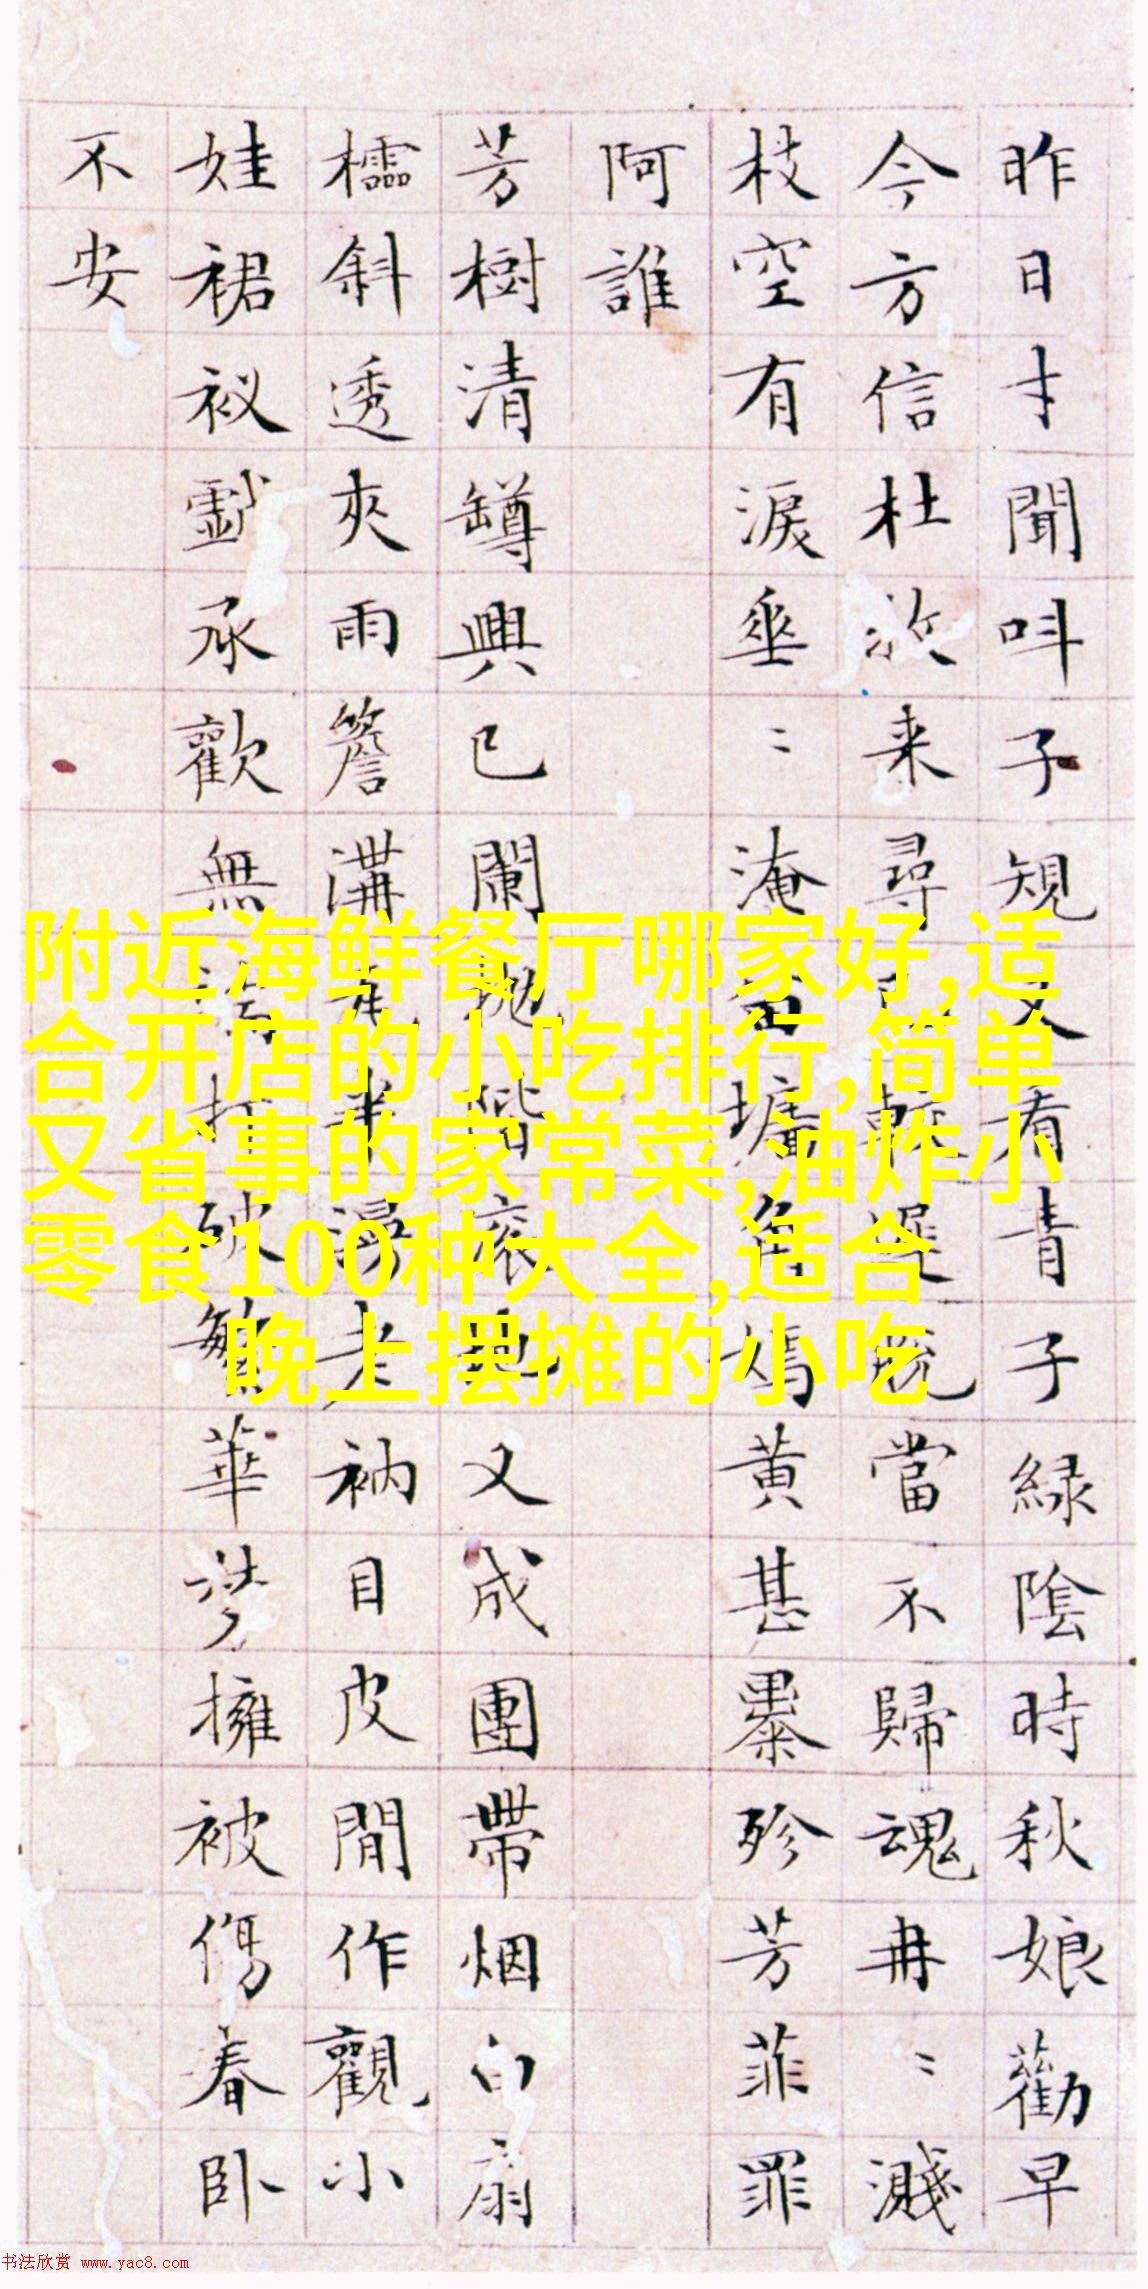 昨日才聞叫子規又看青子綠陰時秋娘勸早
今方信杜牧来尋已較遲既當不歸魂冉〻濺
枝空有淚垂〻淹留墻角嫣黄甚㬥殄芳菲罪
阿誰
芳樹清罇興已闌拋堦滚地又成團帶烟白扇
櫺斜透夾雨簷溝半老衲目皮間作觀小
娃裙衩戲承歡無打破繁華夢擁被傷春卧
不安
附近海鲜餐厅哪家好,适
合开店的小吃排行,简单
又省事的家常菜,油炸小
零食100种大全,适合
晚上摆摊的小吃
书法欣赏 www.yac8.com